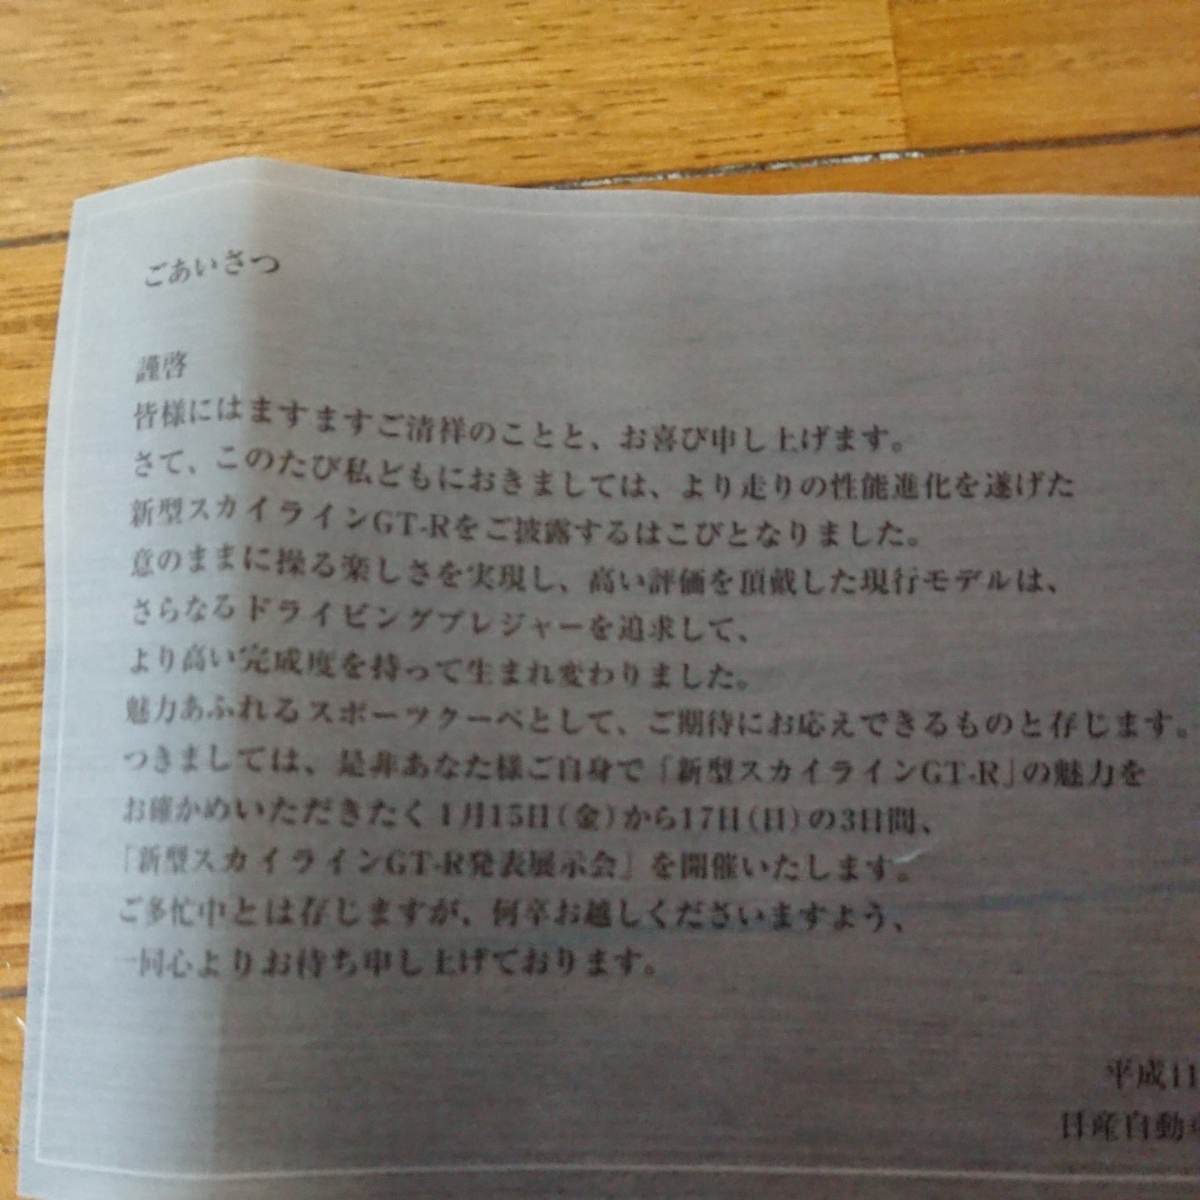 ごあいさつ
謹啓
皆様にはますますご清祥のことと、お喜び申し上げます。
さて、このたび私どもにおきましては、より走りの性能進化を遂げた
新型スカイラインGT-Rをご披露するはこびとなりました。
意のままに操る楽しさを実現し、高い評価を頂戴した現行モデルは、
さらなるドライビングプレジャーを追求して、
より高い完成度を持って生まれ変わりました。
魅力あふれるスポーツクーペとして、ご期待にお応えできるものと存じます。
つきましては、是非あなた様ご自身で「新型スカイラインGT-R」の魅力を
お確かめいただきたく1月15日(金)から17日(日)の3日間、
「新型スカイラインGT-R発表展示会」を開催いたします。
ご多忙中とは存じますが、何卒お越しくださいますよう、
一同心よりお待ち申し上げております。
平成11
日産自動車